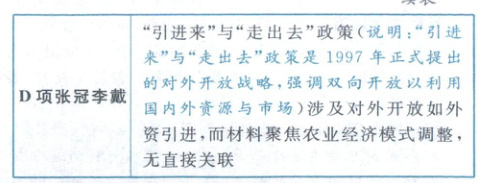 “引进来”与“走出去”政策(说明:“引进
来”与“走出去”政策是1997年正式提出
的对外开放战略,强调双向开放以利用
D项张冠李戴
国内外资源与市场)涉及对外开放如外
资引进,而材料聚焦农业经济模式调整,
无直接关联